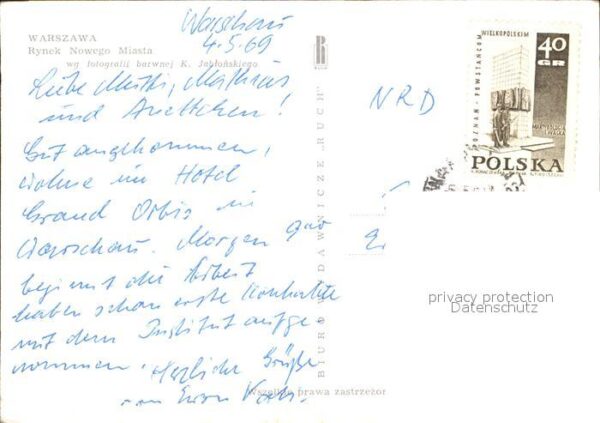 WARSZAWA
Rynek Nowego Miasta
wg fotografii barwnej K. Jabłońskiego
Warschau
4.5.69
Liebe Mutti, Matthias
und Anettchen!
Gut angekommen,
wohne im Hotel
Grand Orbis in
Warschau. Morgen
beginnt die Arbeit
haben schon erste Kontakte
mit dem Institut aufge
nommen. Herzliche Grüße
von
BIURO WYDAWNICZE „RUCH"
Wszelkie prawa zastrzeżone
NRD
WIELKOPOLSKIM
POZNAŃ - POWSTAŃCOM
40
GR
POLSKA
privacy protection
Datenschutz